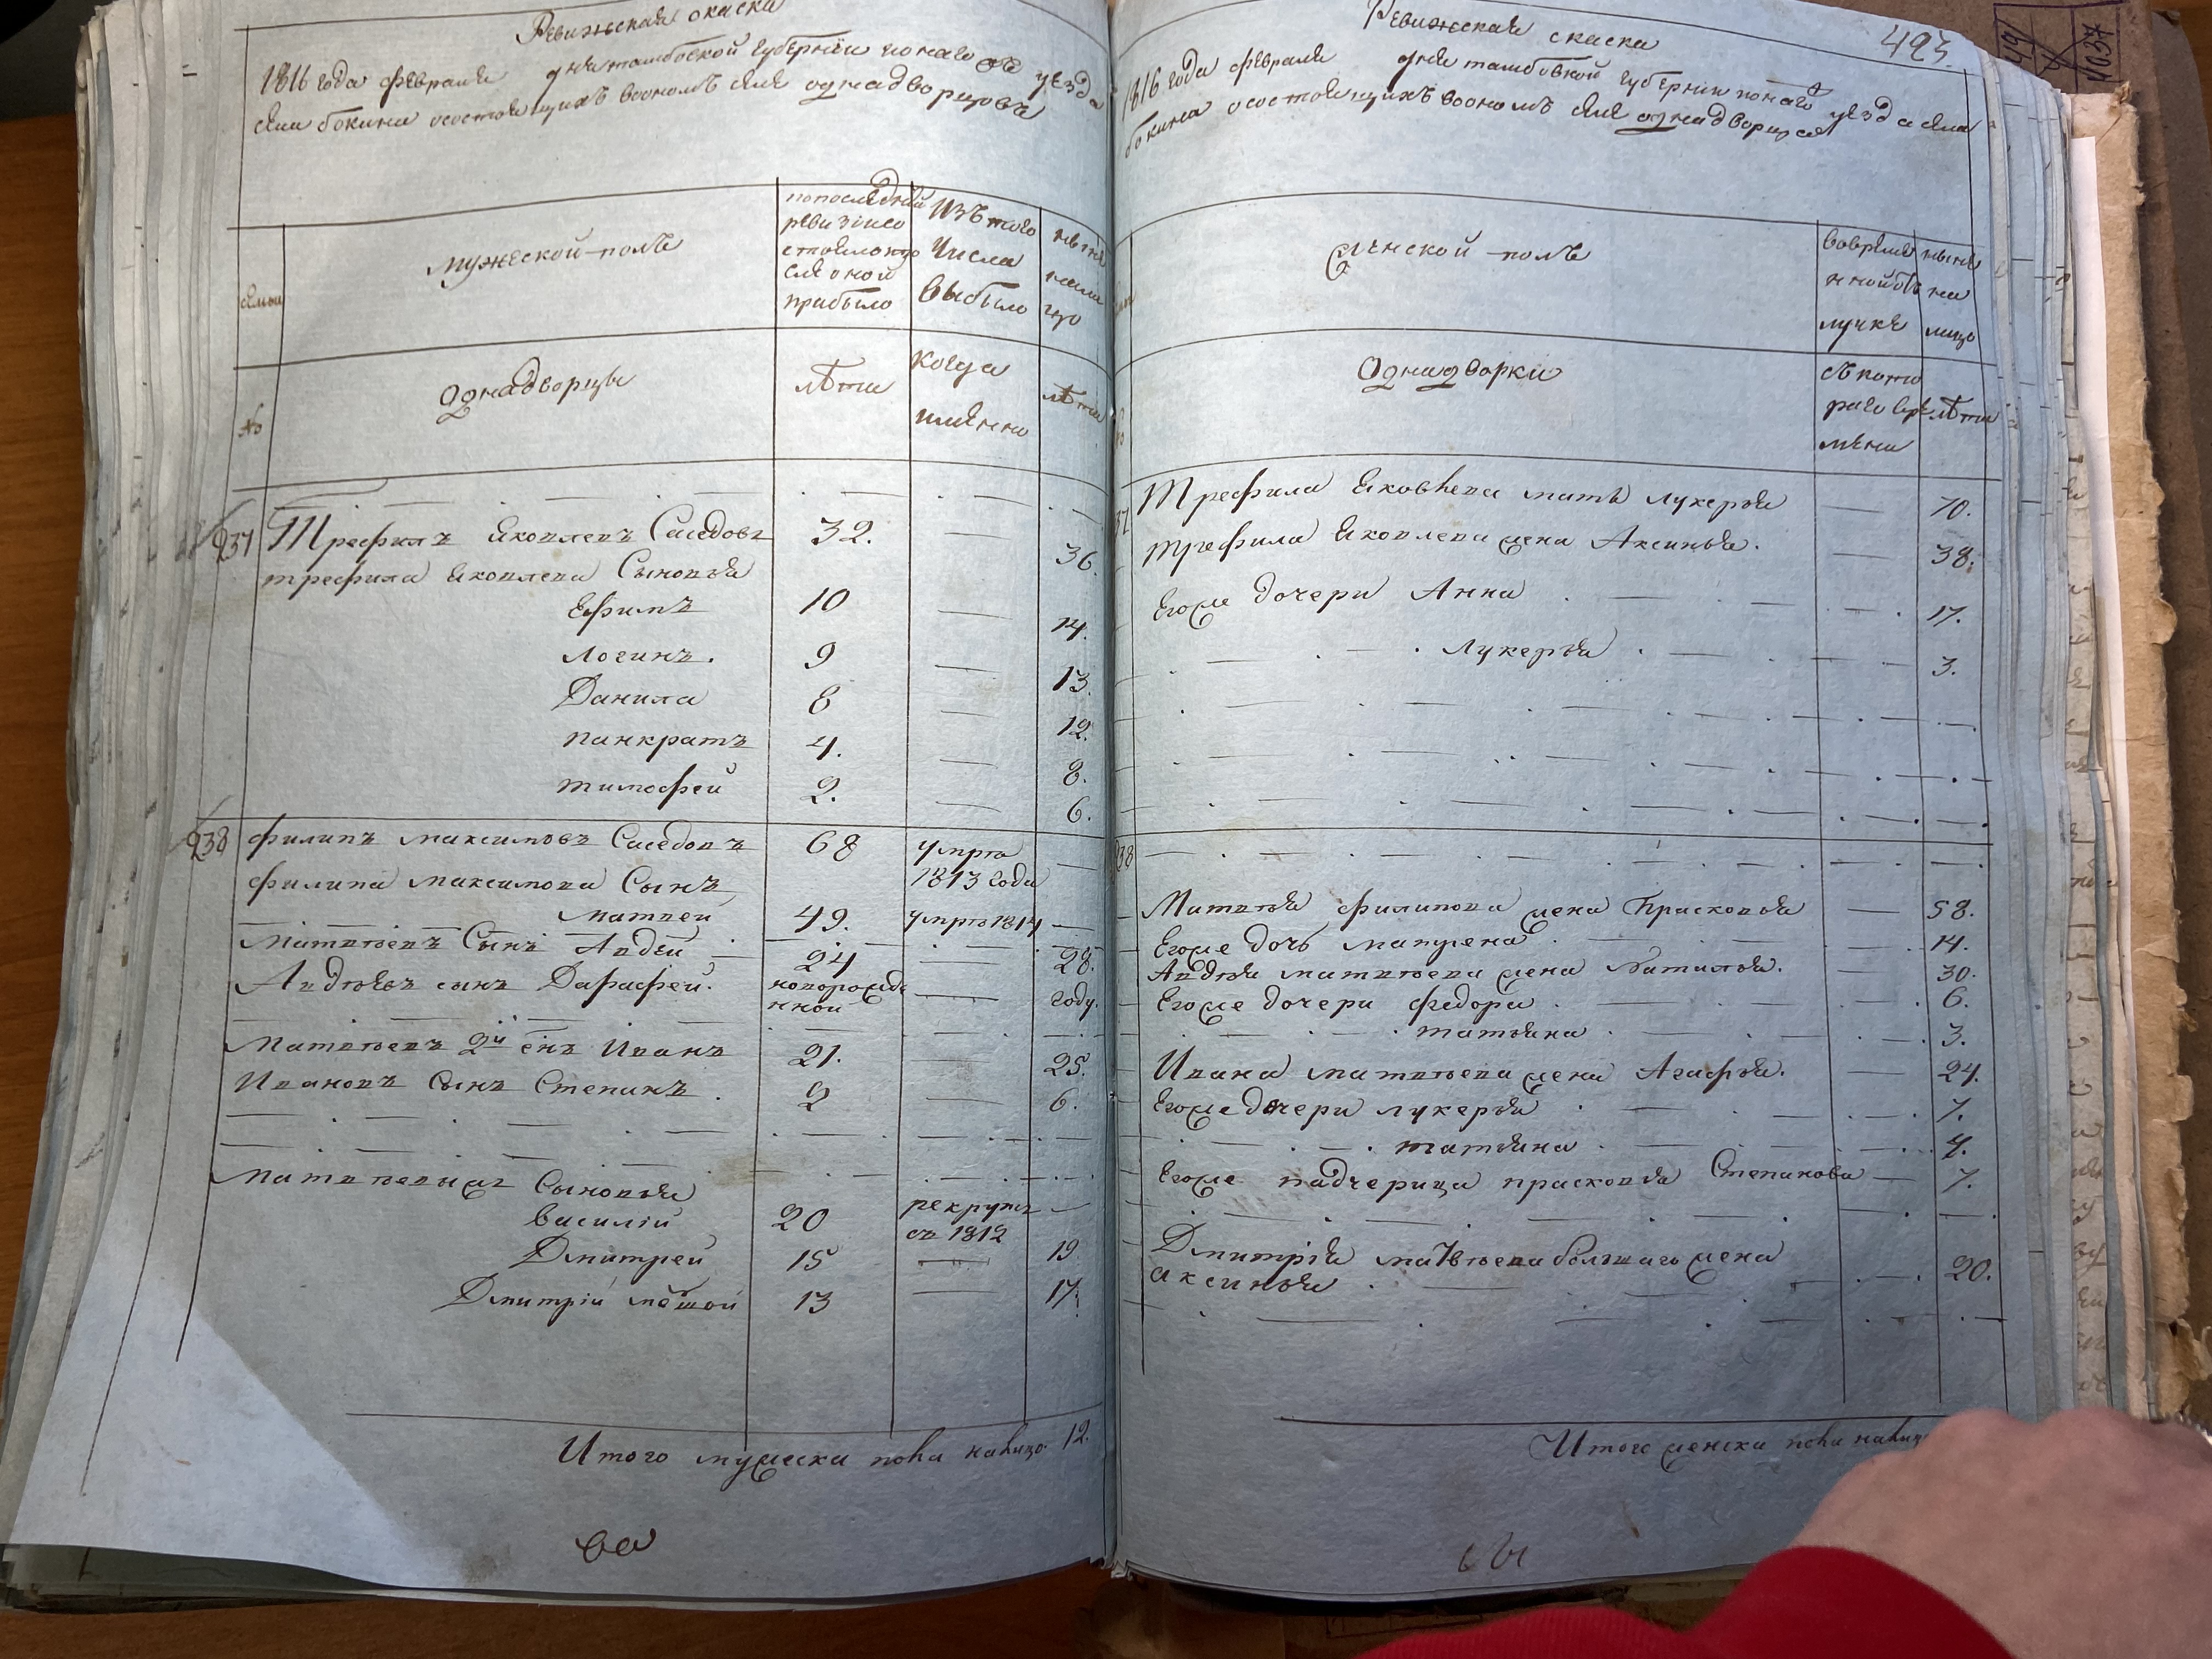 Ревижская скаска
1816 года февраля дня тамбовской губернии
села бокина осостоящихъ воономъ селе однадворцовъ
мужеской полъ
попоследней
ревизiи со
стояло и по
сле оной
прибыло
изъ того
числа
выбыло
ныне
на ли
цо
семьи
однадворцы
лѣта
когда
имянно
лѣта
№
237 Трефилъ Яковлевъ Саседовъ 32. — 36.
трефила Яковлева Сыновья
Ефимъ 10 — 14.
Логинъ. 9 — 13.
Данила 8 — 12.
панкратъ 4. — 8.
тимофей 2. — 6.
238 филипъ максимовъ Саседовъ 68 умре 1813 года —
филипа максимова Сынъ
матвей 49. умре 1814 —
Матвѣевъ Сынъ Авдей 24 — 28.
Авдѣевъ сынъ Дарафей. новорожде нной — году.
Матвѣевъ 2й снъ Иванъ 21. — 25.
Ивановъ Сынъ Степанъ. 2 — 6.
Матвѣевы Сыновья
василiй 20 рекрутъ въ 1812 —
Дмитрей 15 — 19
Дмитрiй меншой 13 — 17.
Итого мужеска пола налицо. 12.
Ревижская скаска
493.
1816 года февраля дня тамбовской губернии уезда села
бокина осостоящихъ воономъ селе однадворцовъ
женской полъ
вовреме
нной отъ
лучке
ныне
на
лицо
Однадворки
съ кото
раго вре
мени
лѣта
237 Трефила Яковлева мать лукерья — 70.
трефила Яковлева жена Аксинья. — 38.
Егоже дочери Анна 17.
лукерья 3.
238
Матвея филипова жена Прасковья — 58.
Егоже дочь мавурена 14.
Авдея матвѣева жена Наталья. — 30.
Егоже дочери федора 6.
татьяна 3.
Ивана матвѣева жена Агафья. — 24.
Егоже дочери лукерья 7.
татьяна 4.
Егоже падчерица прасковья Степанова — 7.
Дмитрiя матвѣева большаго жена
аксинья 20.
Итого женска пола налицо